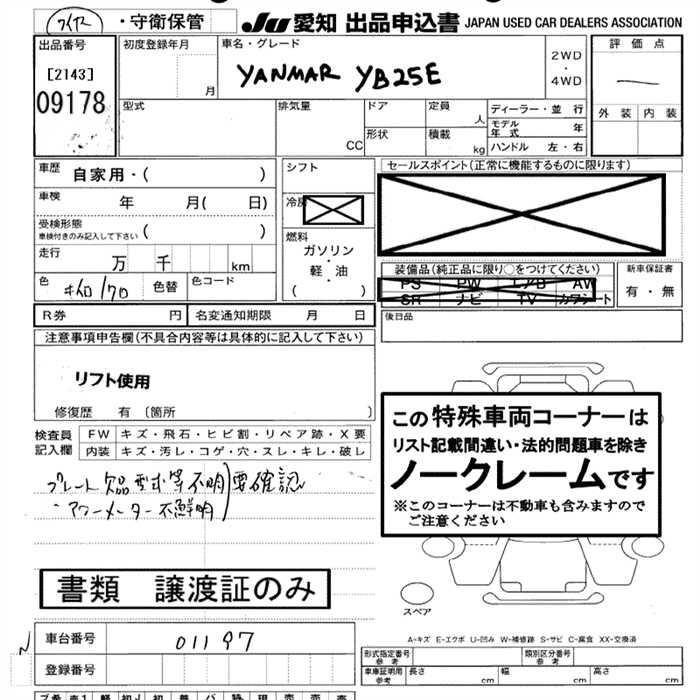 ・守衛保管
JU 愛知 出品申込書 JAPAN USED CAR DEALERS ASSOCIATION
出品番号
[2143]
09178
初度登録年月
月
車名・グレード
YANMAR YB25E
2WD
・
4WD
評価点
外装 内装
型式
排気量
CC
ドア
形状
定員
人
積載
kg
ディーラー・並行
モデル年式 年
ハンドル 左・右
車歴
自家用・( )
車検
年 月( 日)
受検形態
車検付きのみ記入して下さい ( )
走行
万 千 km
色
色替
色コード
シフト
冷房
燃料
ガソリン
・
軽・油
( )
セールスポイント(正常に機能するものに限ります)
装備品(純正品に限り○をつけてください)
PS PW エアB AW
SR ナビ TV カワシート
新車保証書
有・無
R券 円
名変通知期限 月 日
後日品
注意事項申告欄(不具合内容等は具体的に記入して下さい)
リフト使用
修復歴 有 〔箇所 〕
検査員記入欄
FW キズ・飛石・ヒビ割・リペア跡・X要
内装 キズ・汚レ・コゲ・穴・スレ・キレ・破レ
プレート欠品 型式等不明
アワーメーター不鮮明
要確認
この特殊車両コーナーは
リスト記載間違い・法的問題車を除き
ノークレームです
※このコーナーは不動車も含みますので
ご注意ください
スペア
書類 譲渡証のみ
A-キズ E-エクボ U-凹み W-補修跡 S-サビ C-腐食 XX-交換済
車台番号
01197
登録番号
形式指定番号
参考
類別区分番号
参考
車庫証明用
参考
長さ cm
幅 cm
高さ cm